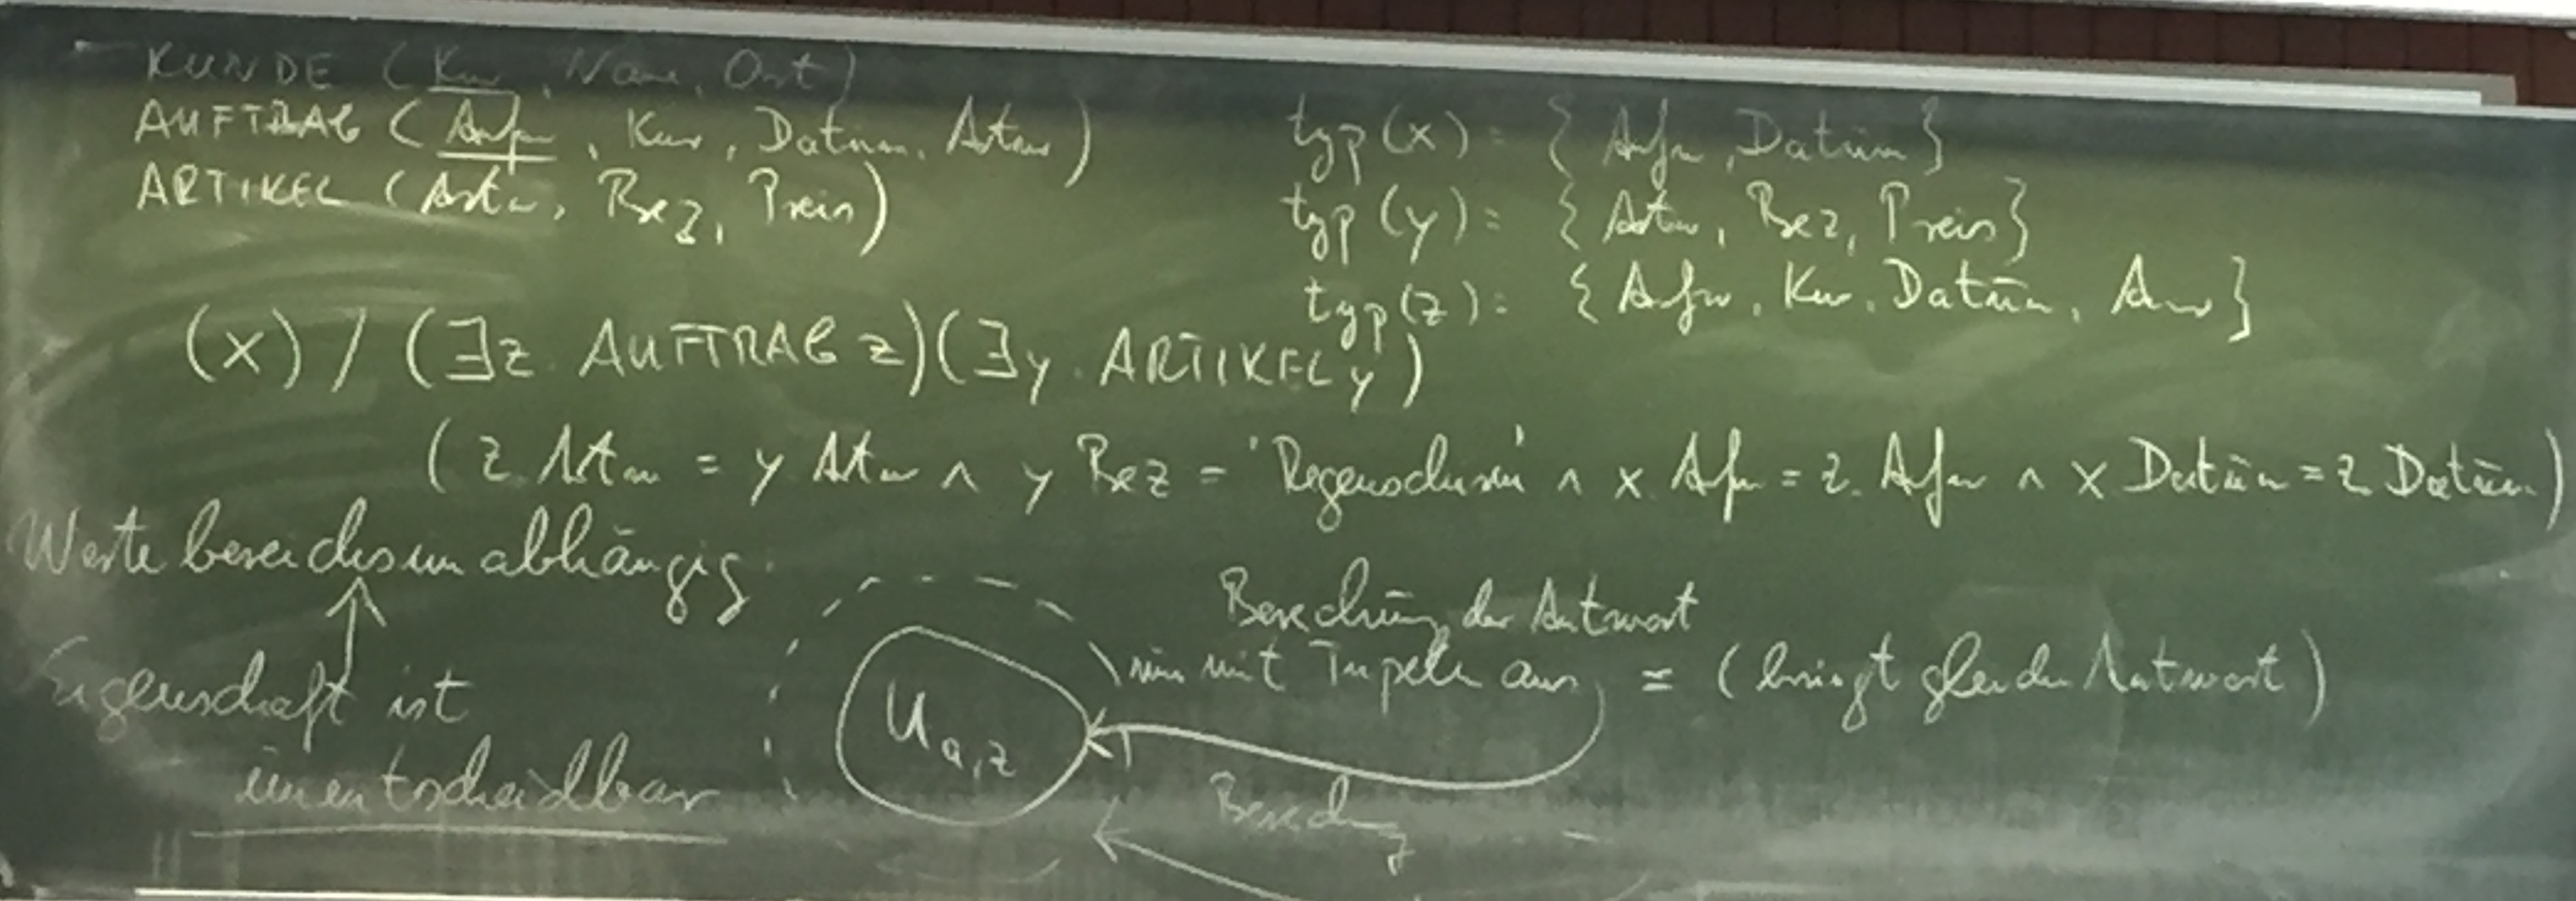 KUNDE (Knr, Name, Ort)
AUFTRAG (Aufnr, Knr, Datum, Artnr)
ARTIKEL (Artnr, Bez, Preis)
typ(x) = {Aufnr, Datum}
typ(y) = {Artnr, Bez, Preis}
typ(z) = {Afnr, Knr, Datum, Anr}
(x) / (∃z AUFTRAG z)(∃y ARTIKEL y)
(z.Artnr = y Artnr ∧ y Bez = 'Regenschirm' ∧ x.Afnr = z.Afnr ∧ x Datum = z Datum)
Wertebereichsunabhängig
Eigenschaft ist
unentscheidbar
Berechnung der Antwort
nur mit Tupeln aus = (bringt gleiche Antwort)
U a,z
Berechng